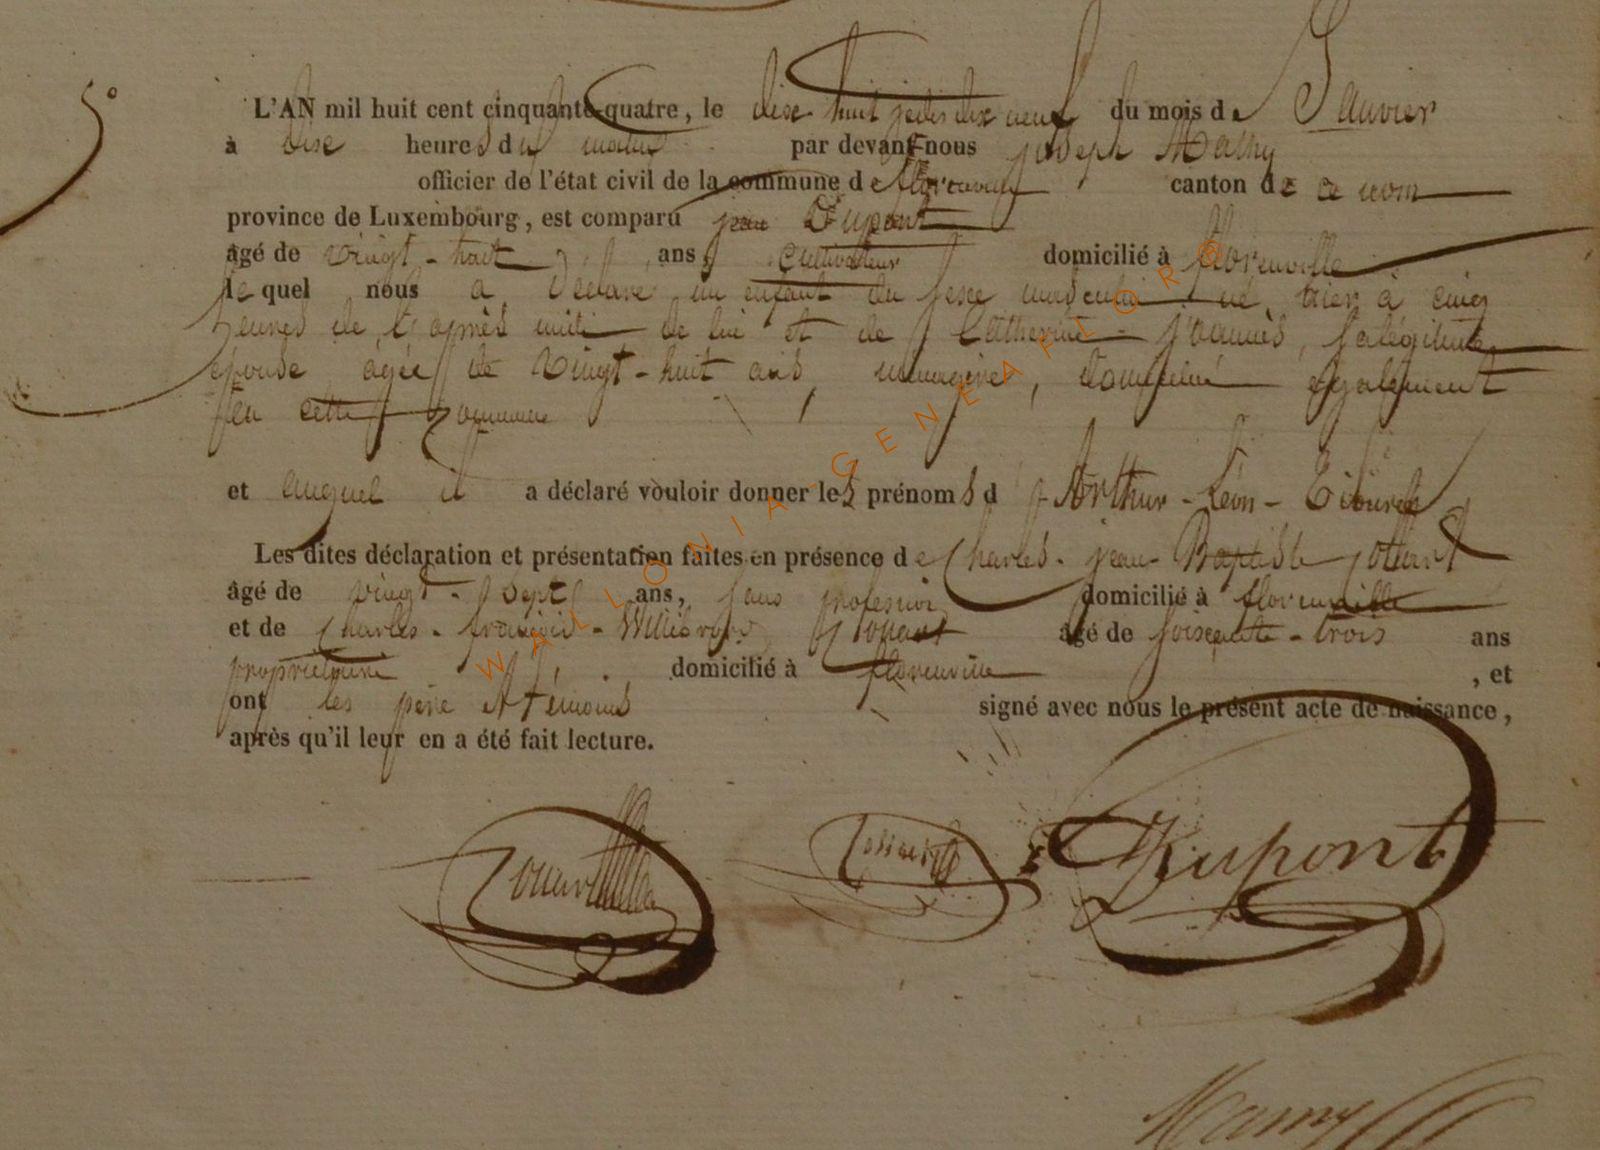 5°
L'AN mil huit cent cinquante-quatre, le dix huit jedis dix neuf du mois de Janvier
à dix heures du matin par devant nous joseph Mathy
officier de l'état civil de la commune de florenville canton de ce nom
province de Luxembourg, est comparu jean Dupont
âgé de vingt-huit ans, Cultivateur domicilié à florenville
le quel nous a déclaré un enfant du sexe masculin né hier à cinq
heures de l'après midi de lui et de Catherine jeannès, sa légitime
épouse agée de vingt-huit ans, ménagère, domicilié également
en cette commune
et auquel il a déclaré vouloir donner les prénoms d Arthur-Léon-Edouard
Les dites déclaration et présentation faites en présence de Charles-jean-Baptiste
âgé de vingt-sept ans, sans profession domicilié à florenville
et de Charles-françois-Willibrord âgé de soixante-trois ans
propriétaire domicilié à florenville, et
ont les père et témoins signé avec nous le présent acte de naissance,
après qu'il leur en a été fait lecture.
Dupont
WALLONIA-GENEAFLOR©